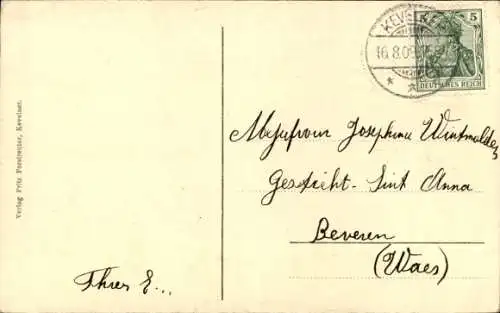 KEVELAER
16.8.09
5
DEUTSCHES REICH
Mejufvrouw Josephina
Gesticht - Sint Anna
Beveren
(Waes)
E...
Verlag Fritz Forstreuter, Kevelaer.